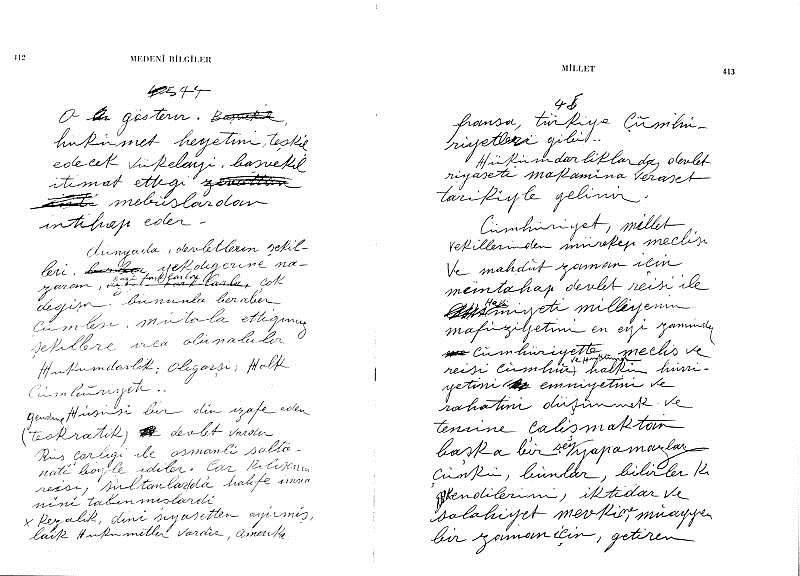 412
MEDENİ BİLGİLER
544
O gösterir. Başvekil,
hukûmet heyetini teşkil
edecek vukelayi, başvekil
itimat ettigi
mebuslardan
intihap eder.
dunyada, devletlerin şekil-
leri, yekdigerine na-
zaran, çok
degişir. bununla beraber
Cumlesi, mutala ettigimiz
şekillere irca olunabilir
Hukumdarlik; Oligarşi; Halk
Cümhûriyeti...
Hususi bir din izafe eden
(teokratik) devlet vardır
Rus çarligi ile osmanli salta-
nati boyle idiler. Çar kilisenin
reisi, sultanlarda halife unva
nini takinmislardi
x Keyalik, dini siyasetten ayirmiş,
laik Hukumetler vardir, Amerika
MİLLET
413
45
fransa, türkiye Cümhu-
riyetleri gibi..
Hükümdarliklarda, devlet
riyaseti makamina veraset
tarikiyle gelinir.
Cümhûriyet, millet
vekillerinden mürekep meclis
Ve mahdut zaman için
müntahap devlet reisi ile
Hakimiyeti milliyenin
mafuziyetini en eyi zamindir
Cümhûriyette, meclis ve
reisi Cümhûr, halkin hürri-
yetini emniyetini ve
rahatini düşünmek ve
temine çalismaktan
başka bir şey yapamazlar
Çünkü, bunlar, bilirler ki
kendilerini, iktidar ve
salahiyet mevkiine, müayyen
bir zaman için, getiren